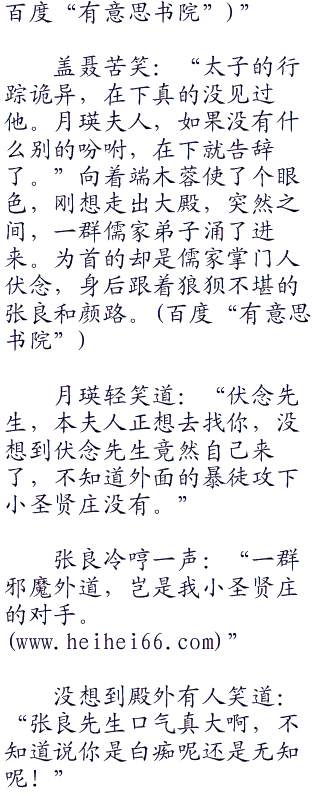 百度“有意思书院”)”
盖聂苦笑：“太子的行
踪诡异，在下真的没见过
他。月瑛夫人，如果没有什
么别的吩咐，在下就告辞
了。”向着端木蓉使了个眼
色，刚想走出大殿，突然之
间，一群儒家弟子涌了进
来。为首的却是儒家掌门人
伏念，身后跟着狼狈不堪的
张良和颜路。(百度“有意思
书院”)
月瑛轻笑道：“伏念先
生，本夫人正想去找你，没
想到伏念先生竟然自己来
了，不知道外面的暴徒攻下
小圣贤庄没有。”
张良冷哼一声：“一群
邪魔外道，岂是我小圣贤庄
的对手。
(www.heihei66.com)”
没想到殿外有人笑道：
“张良先生口气真大啊，不
知道说你是白痴呢还是无知
呢！”